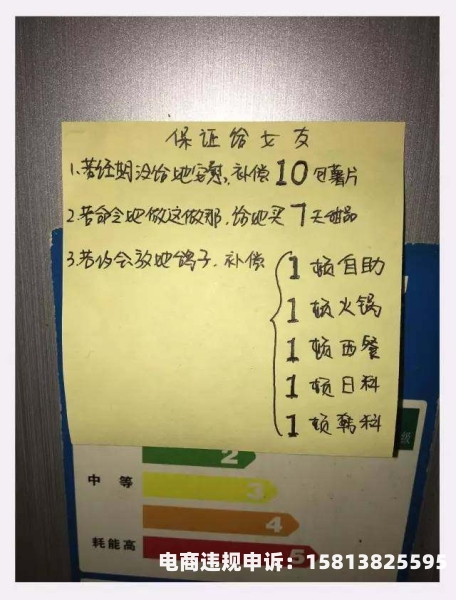 保证给女友
1.若经期没给她安慰,补偿10包薯片
2.若命令她做这做那,给她买7天甜品
3.若约会放她鸽子,补偿
1顿自助
1顿火锅
1顿西餐
1顿日料
1顿韩料
级
2
中等
3
4
耗能高
5
电商违规申诉：15813825595